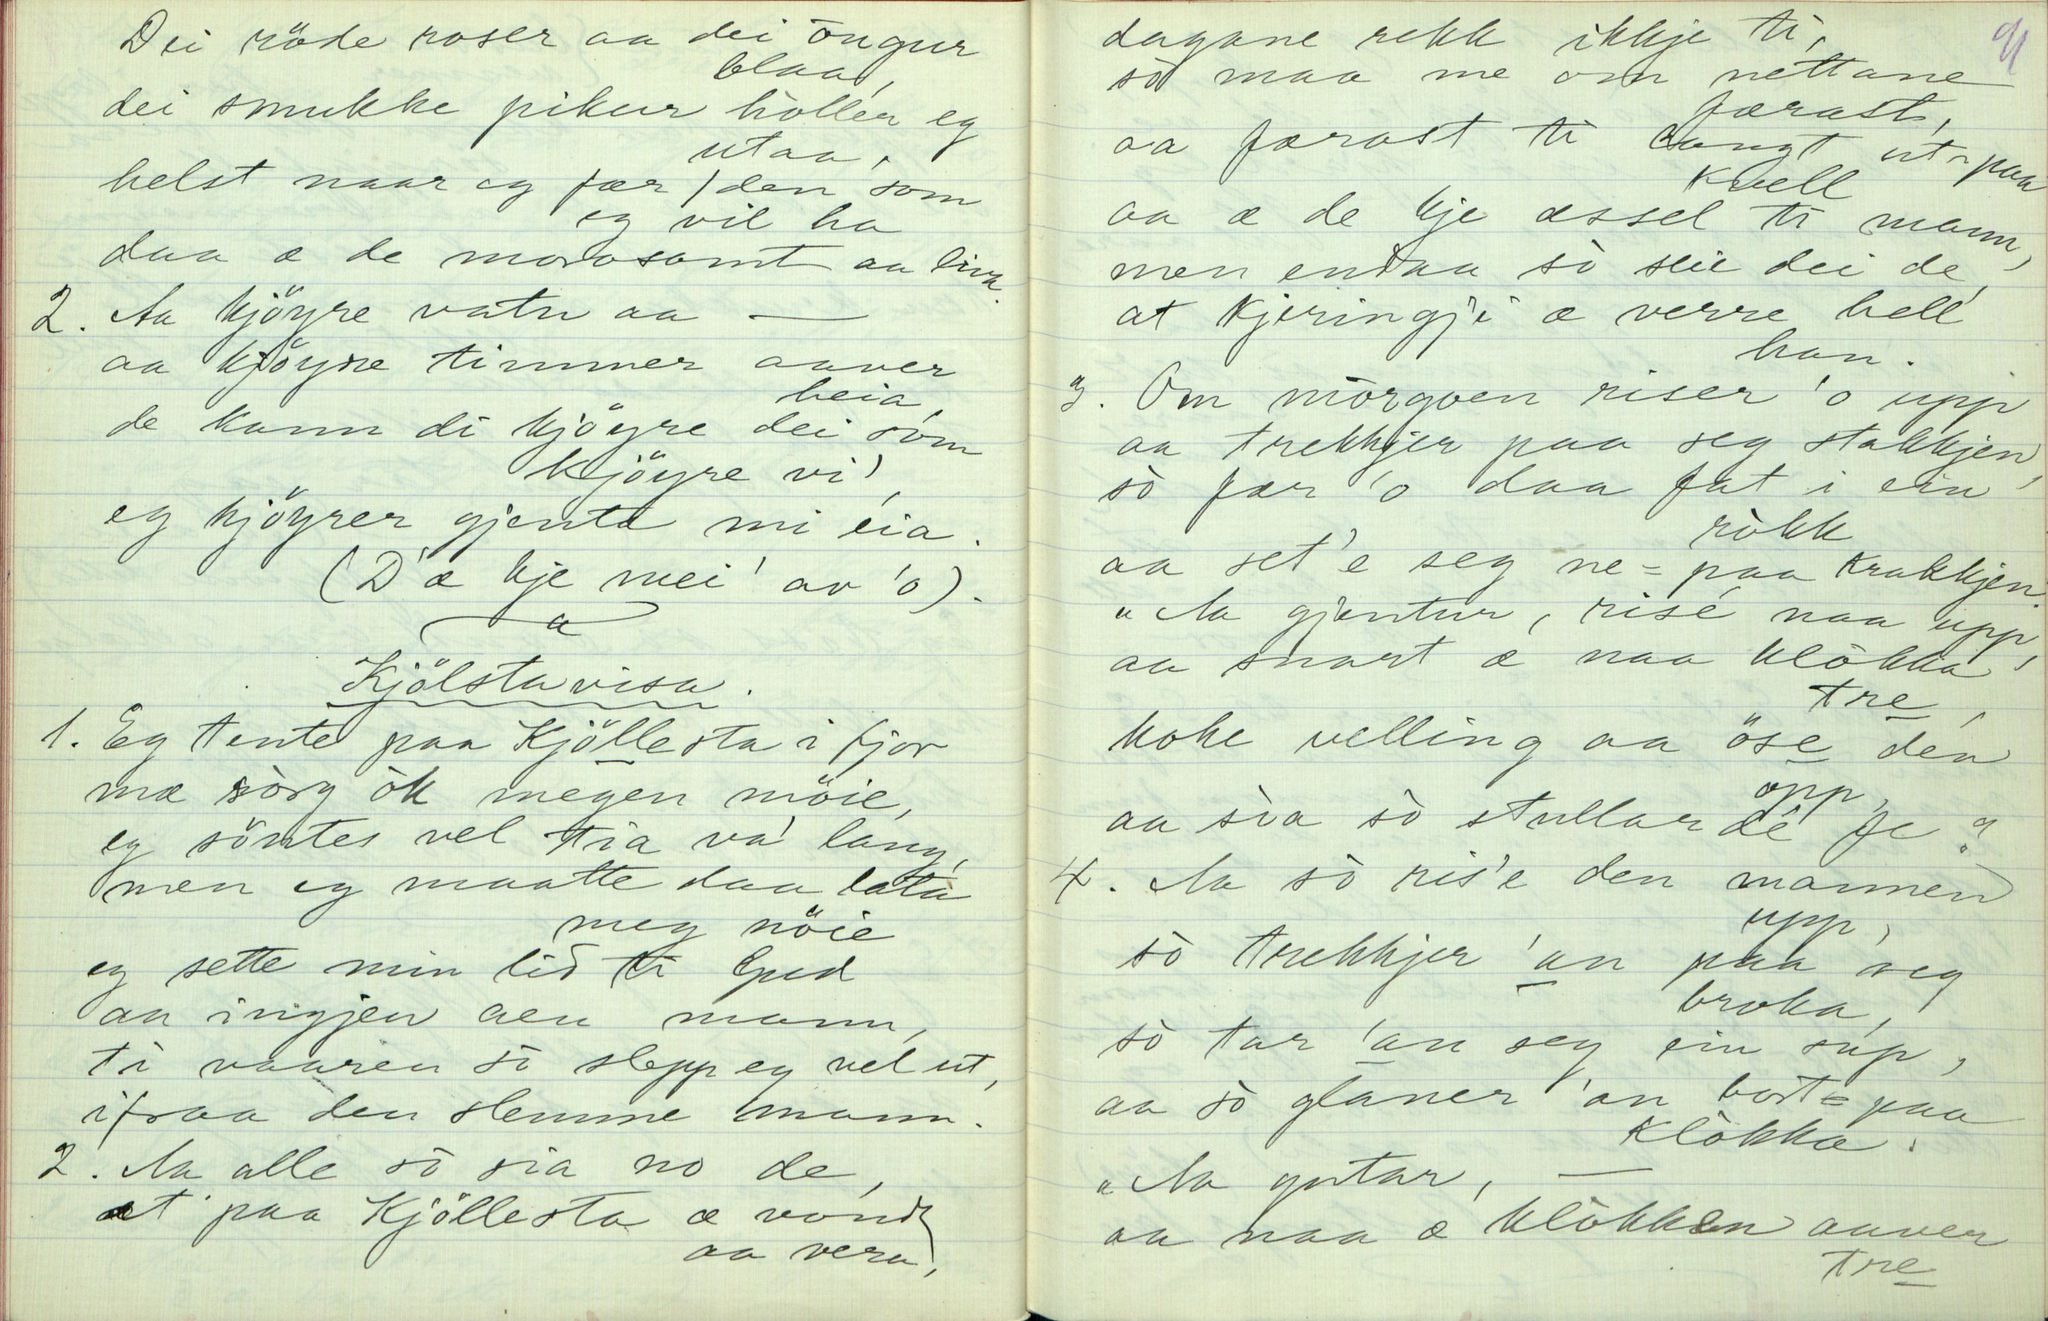 Dei röde roser aa dei öugur
blaa,
dei smukke pikur höller eg
utaa,
helst naar eg fær den som
eg vil ha
daa æ de morosamt aa liva.
2. Aa kjöyre vatn aa —
aa kjöyre timmer aaver
heia,
de kann di kjöyre dei som
kjöyre vi',
eg kjöyrer gjenta mi eia.
(D'æ kje mei' av 'o).
Kjölstavisa.
1. Eg tente paa Kjöllesta i fjor
mæ sòrg òk megen möie,
eg syntes vel tia va' lang,
men eg maatte daa lata
meg nöie
eg sette min lid ti Gud
aa ingjen aen mann,
ti vaaren sò slepp eg vel ut,
ifraa den slemme mann.
2. Aa alle sò sia no de,
at paa Kjöllesta æ vondt
aa vera,
dagane rekk ikkje ti,
sò maa me om nettane
færast,
aa færast ti langt ut-paa
kvell
aa æ de kje æssel ti mann,
men endaa sò seie dei de,
at kjeringji æ verre hell
han.
3. Om mòrgoen riser 'o upp
aa trekkjer paa seg stakkjen,
sò fær 'o daa fat i ein
ròkk
aa set'e seg ne = paa krakkjen.
"Aa gjentur, rise naa upp,
aa snart æ naa klòkka
tre,
koke velling aa öse den
opp,
aa sia sò stullar de fe"
4. Aa sò ris'e den mannen
upp,
sò trekkjer 'an paa seg
broka,
sò tar 'an seg ein sup,
aa sò glaner 'an bort = paa
klòkka.
"Aa gutar, —
aa naa æ klòkken aaver
tre